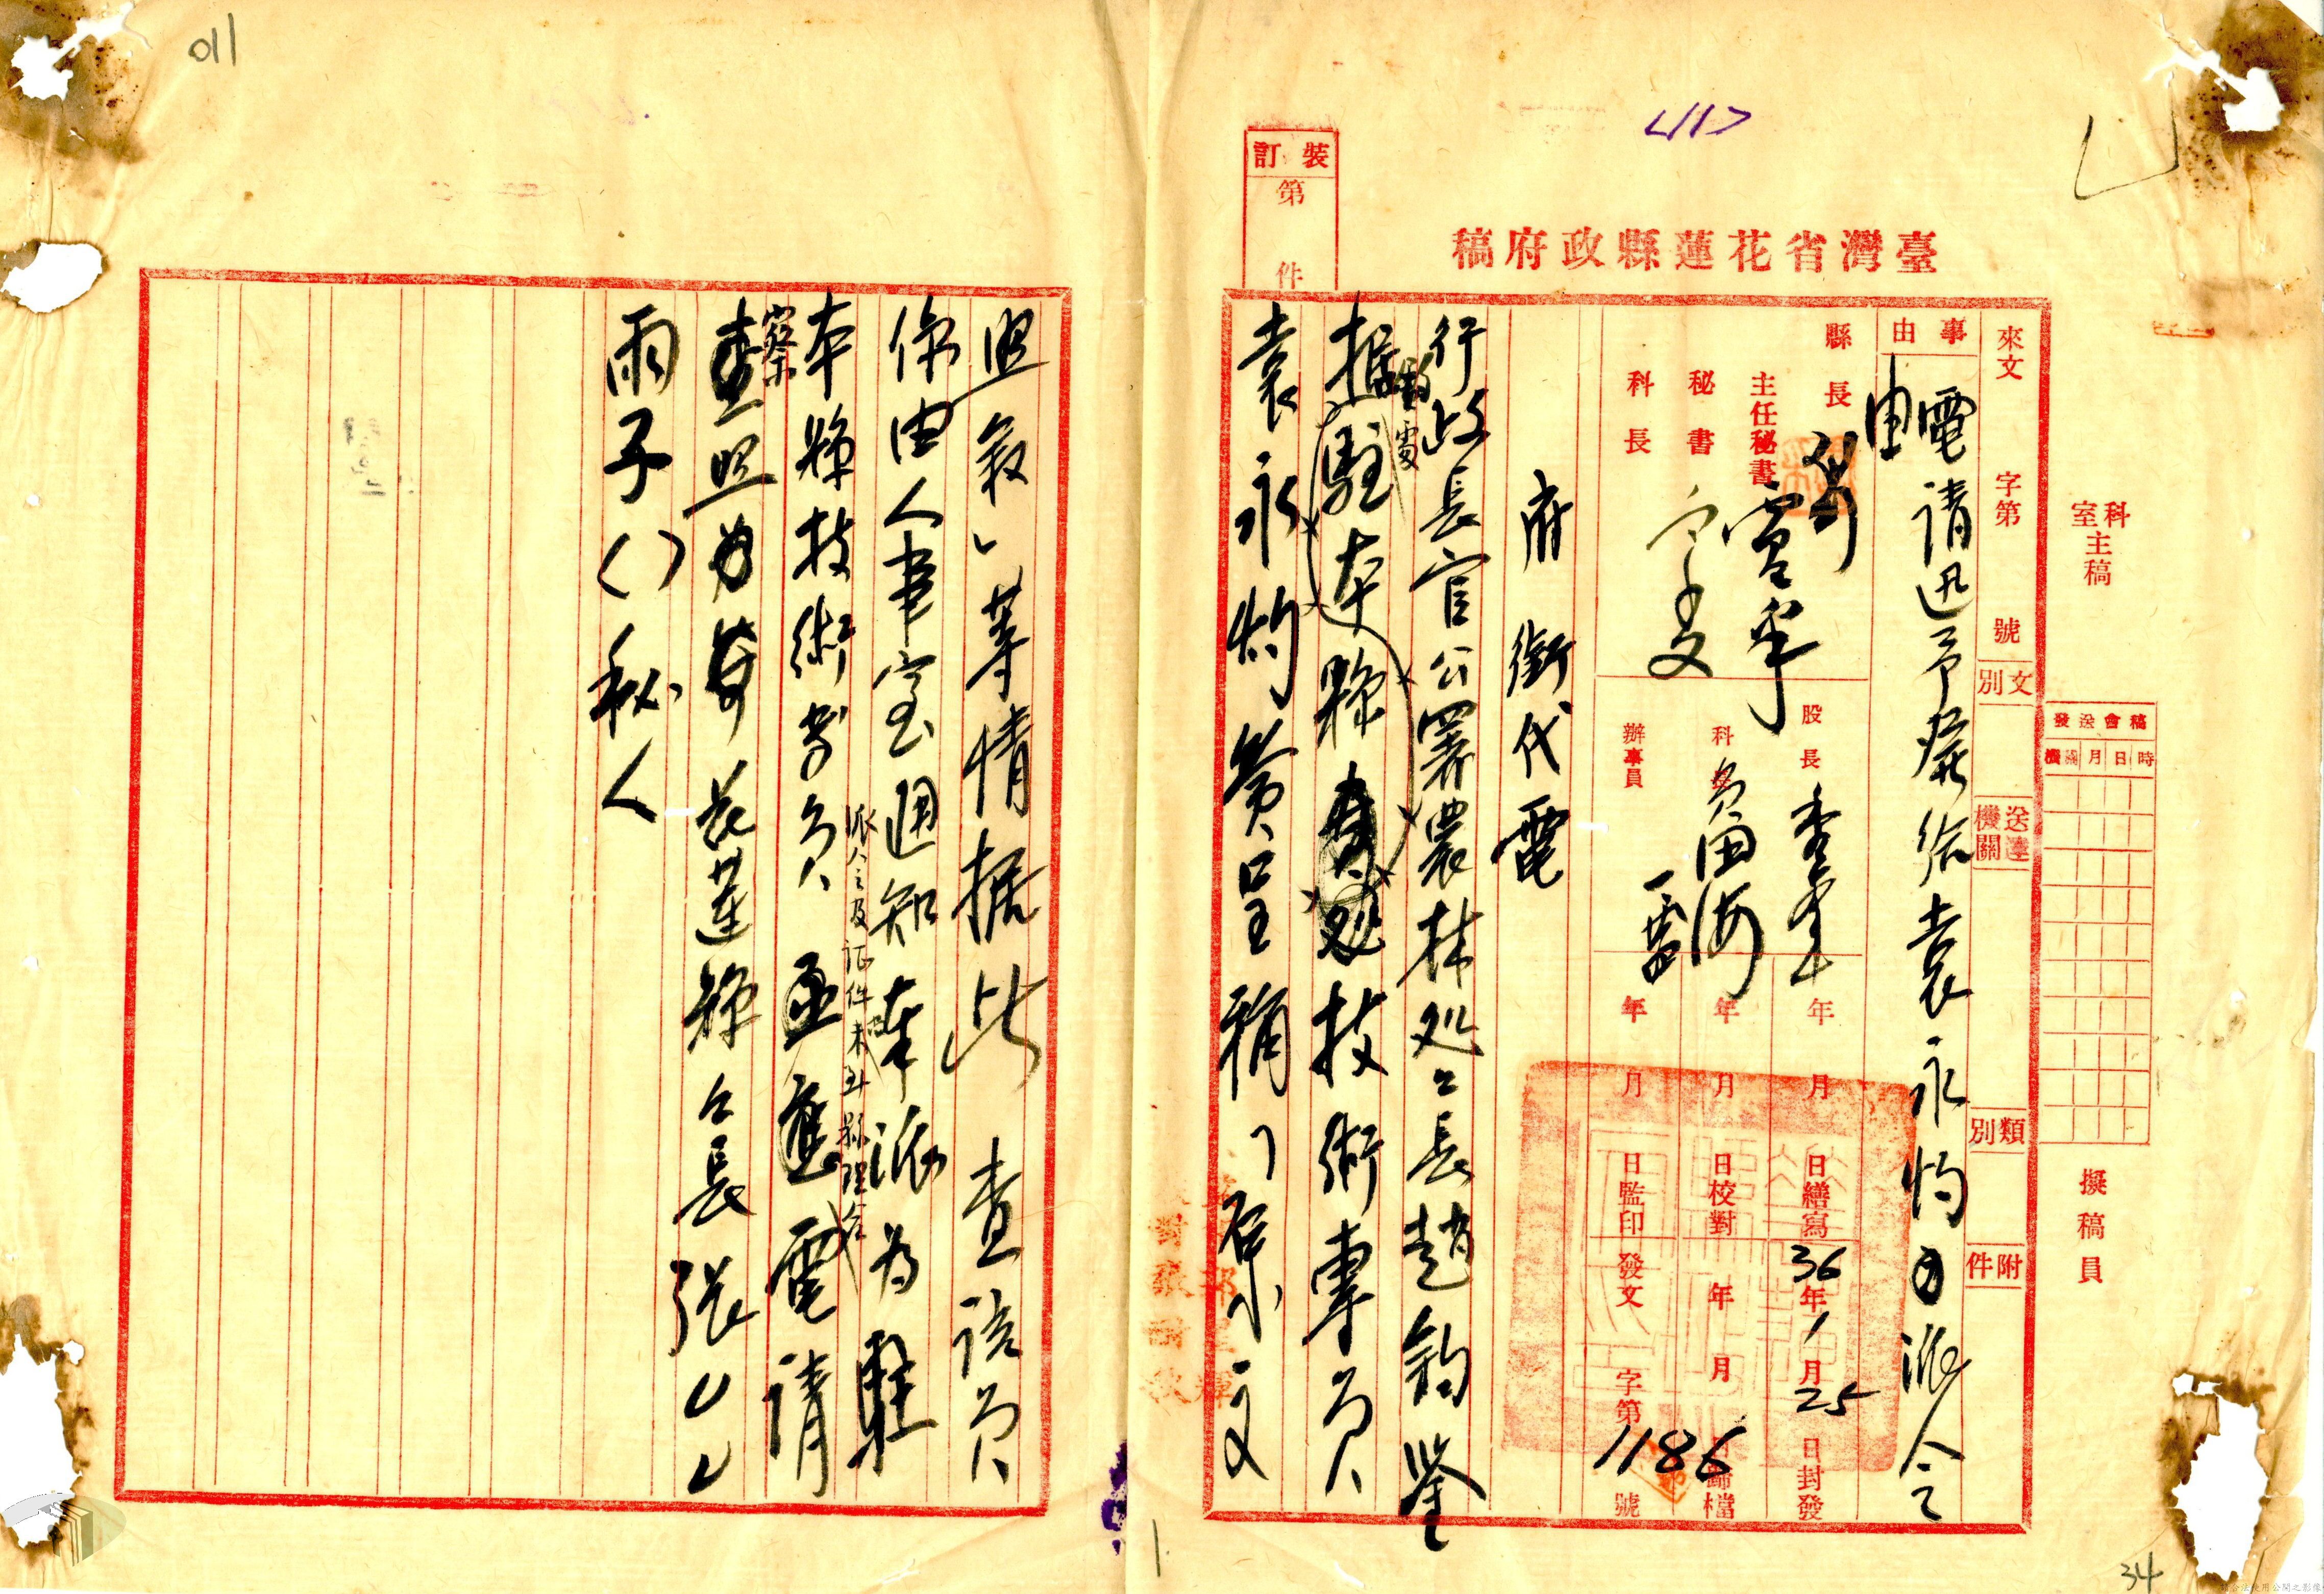 011
<11>
裝訂
第 件
臺灣省花蓮縣政府稿
科室主稿
擬稿員
稿會送發
機關 月 日 時
來文 字第 號
文別
送達機關
類別
附件
事由
電請迅予發給袁永灼派令
由
縣長
主任秘書
秘書
科長
股長
科員
辦事員
年 月 日繕寫
年 月 日校對
年 月 日監印
36年1月25日封發
年 月 日歸檔
發文 字第1186號
府銜代電
行政長官公署農林処々長趙鈞鑒
据駐本縣技術專員
袁永灼簽呈稱「原文
照敘」等情据此 查該員
係由人事室通知奉派為駐
派令及証件未到縣
本縣技術專員 亟應電請
察
查照為荷 花蓮縣縣長張
雨子()秘人
34